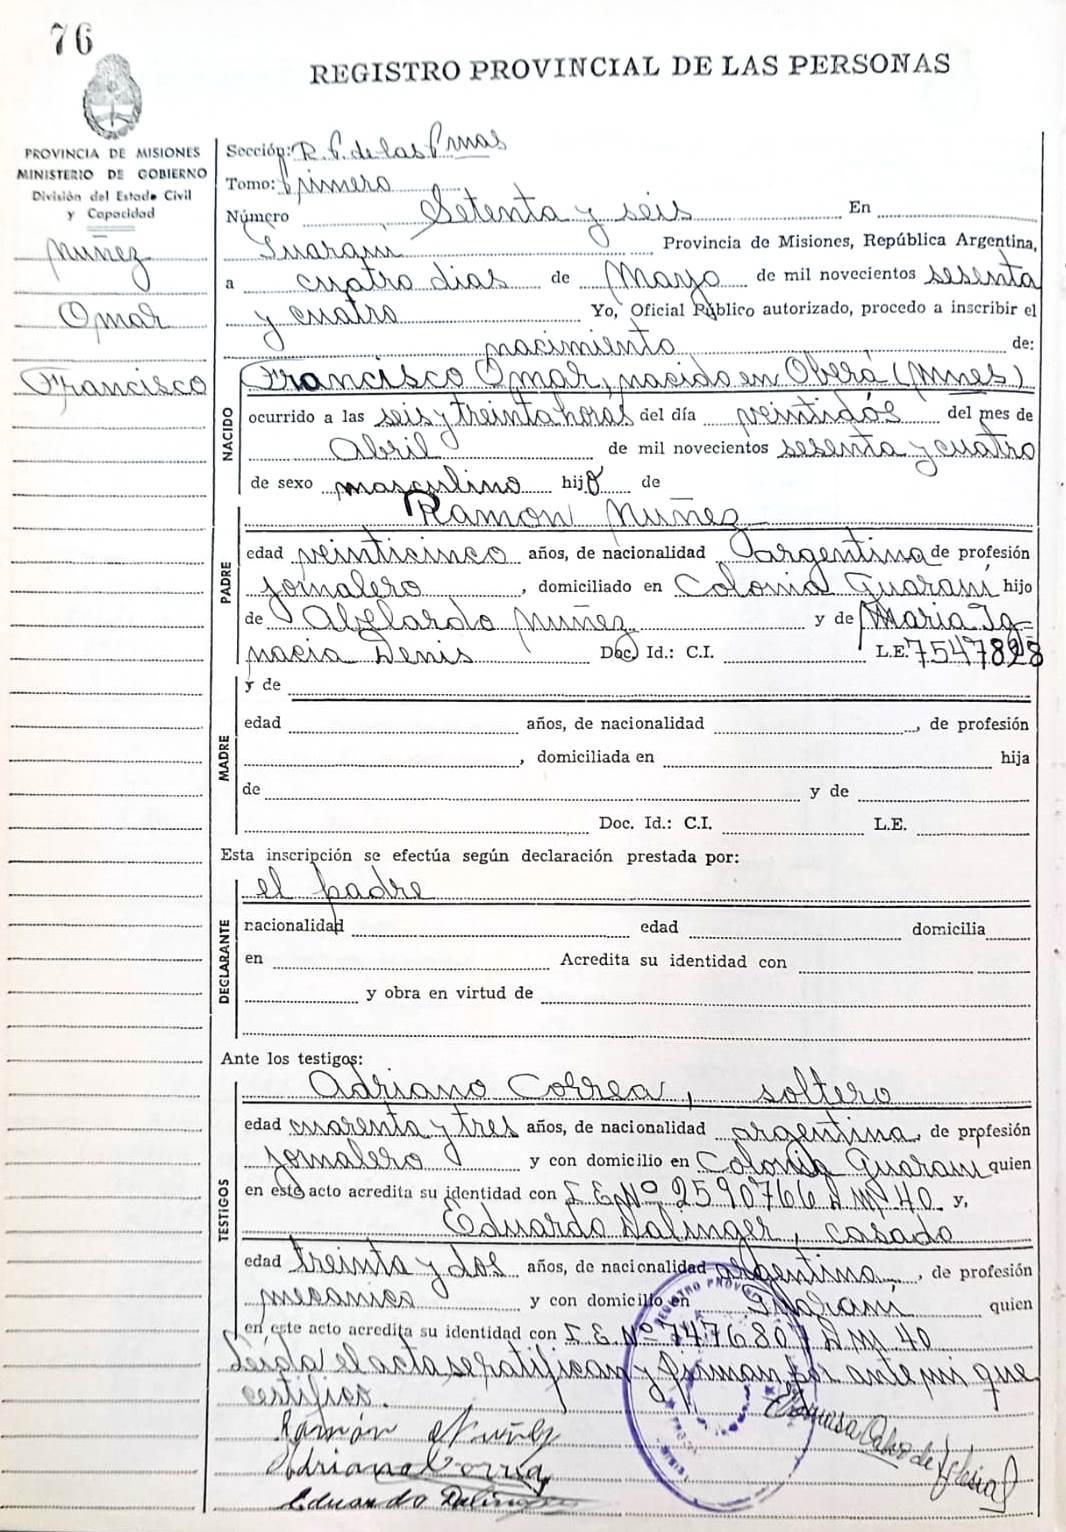 76
REGISTRO PROVINCIAL DE LAS PERSONAS
PROVINCIA DE MISIONES
MINISTERIO DE GOBIERNO
División del Estado Civil
y Capacidad
Nuñez
Omar
Francisco
Sección: R. P. de las Prnas
Tomo: Primero
Número Setenta y seis En
Guaraní Provincia de Misiones, República Argentina,
a cuatro dias de Mayo de mil novecientos sesenta
y cuatro Yo, Oficial Público autorizado, procedo a inscribir el
nacimiento de:
NACIDO
Francisco Omar, nacido en Oberá (Mnes)
ocurrido a las seis y treinta horas del día veintidós del mes de
Abril de mil novecientos sesenta y cuatro
de sexo masculino hijo de
PADRE
Ramon Nuñez
edad veinticinco años, de nacionalidad argentina de profesión
jornalero, domiciliado en Colonia Guaraní hijo
de Abelardo Nuñez y de Maria Ig-
nacia Denis Doc. Id.: C.I. L.E. 7547828
MADRE
y de
edad años, de nacionalidad, de profesión
, domiciliada en hija
de y de
Doc. Id.: C.I. L.E.
Esta inscripción se efectúa según declaración prestada por:
DECLARANTE
el padre
nacionalidad edad domicilia
en Acredita su identidad con
y obra en virtud de
Ante los testigos:
TESTIGOS
Adriano Correa, soltero
edad cuarenta y tres años, de nacionalidad argentina, de profesión
jornalero y con domicilio en Colonia Guarani quien
en este acto acredita su identidad con L E Nº 2590766 D M 40 y,
Eduardo Dalinger, casado
edad treinta y dos años, de nacionalidad argentina, de profesión
mecanico y con domicilio en Guaraní quien
en este acto acredita su identidad con L E Nº 747680 D M 40
Leida el acta se ratifican y firman por ante mi que
certifico.
Ramón Nuñez
Adriano Correa
Eduardo Dalinger
REGISTRO PROVIN